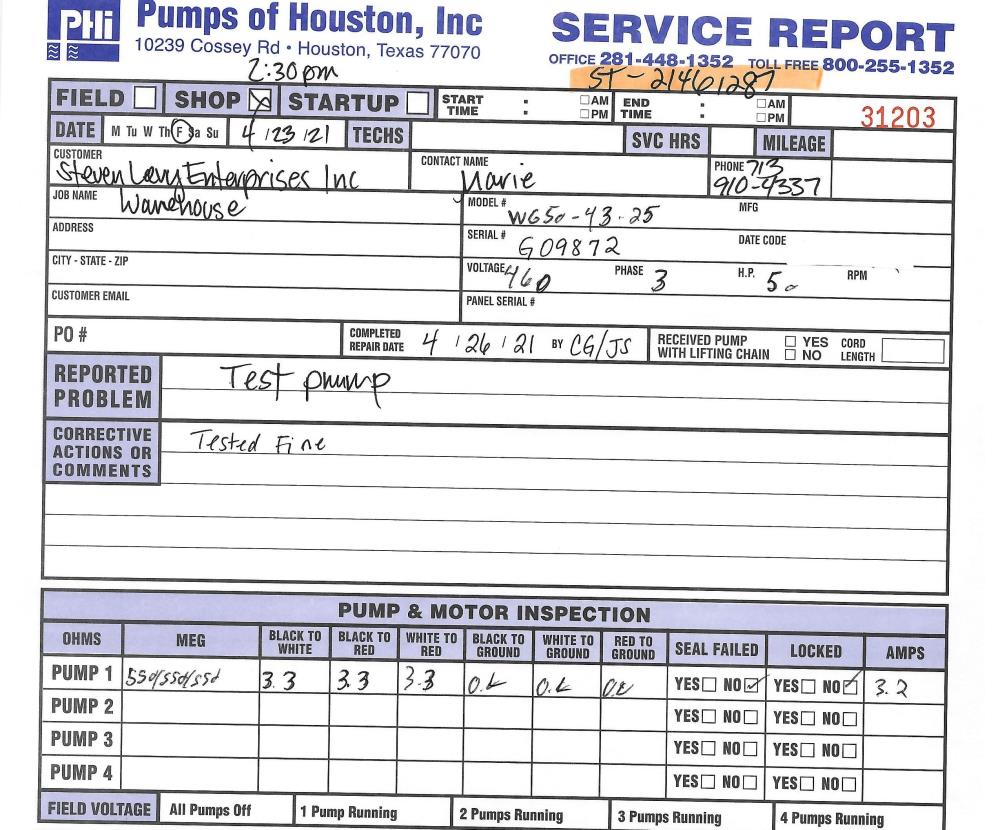 PHi Pumps of Houston, Inc
10239 Cossey Rd • Houston, Texas 77070
SERVICE REPORT
OFFICE 281-448-1352 TOLL FREE 800-255-1352
2:30pm
ST-21461287
FIELD SHOP STARTUP START TIME : AM PM END TIME : AM PM 31203
DATE M Tu W Th F Sa Su 4/23/21 TECHS SVC HRS MILEAGE
CUSTOMER Steven Levy Enterprises Inc CONTACT NAME Marie PHONE 713 910-4337
JOB NAME Warehouse MODEL # WG50-43-25 MFG
ADDRESS SERIAL # G09872 DATE CODE
CITY - STATE - ZIP VOLTAGE 460 PHASE 3 H.P. 5. RPM
CUSTOMER EMAIL PANEL SERIAL #
PO # COMPLETED REPAIR DATE 4/26/21 BY CG/JS RECEIVED PUMP WITH LIFTING CHAIN YES NO CORD LENGTH
REPORTED PROBLEM Test pump
CORRECTIVE ACTIONS OR COMMENTS Tested Fine
PUMP & MOTOR INSPECTION
OHMS MEG BLACK TO WHITE BLACK TO RED WHITE TO RED BLACK TO GROUND WHITE TO GROUND RED TO GROUND SEAL FAILED LOCKED AMPS
PUMP 1 550/550/550 3.3 3.3 3.3 O.L O.L O.L YES NO YES NO 3.2
PUMP 2 YES NO YES NO
PUMP 3 YES NO YES NO
PUMP 4 YES NO YES NO
FIELD VOLTAGE All Pumps Off 1 Pump Running 2 Pumps Running 3 Pumps Running 4 Pumps Running